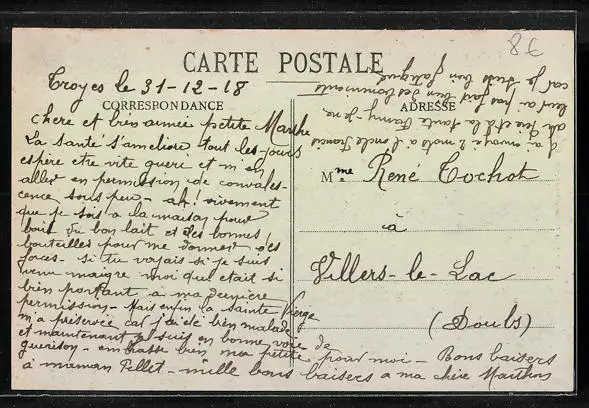 8€
CARTE POSTALE
Troyes le 31-12-18
CORRESPONDANCE
ADRESSE
chere et bien aimée petite Marthe
La santé s'améliore tout les jours
espère etre vite gueri et m'en
aller en permission de convales-
cence sous peu - ah! vivement
que je sois a la maison pour
boir du bon lait et des bonnes
bouteilles pour me donner des
forces - si tu voyais si je suis
venu maigre moi qui etait si
bien portant a ma dernière
permission - Mais enfin la Sainte Vierge
m'a préservée car j'ai été bien malade
et maintenant je suis en bonne voie de
guerison - embrasse bien ma petite pour moi - Bons baisers
à maman Pillet - mille bons baisers a ma chère Marthon
Mme René Cochot
à
Villers-le-Lac
(Doubs)
J'ai envoyé 2 mots a l'oncle Francis
et a la tante Fanny - je ne
leur a pas fait bien des compliments
car je suis bien fatigué